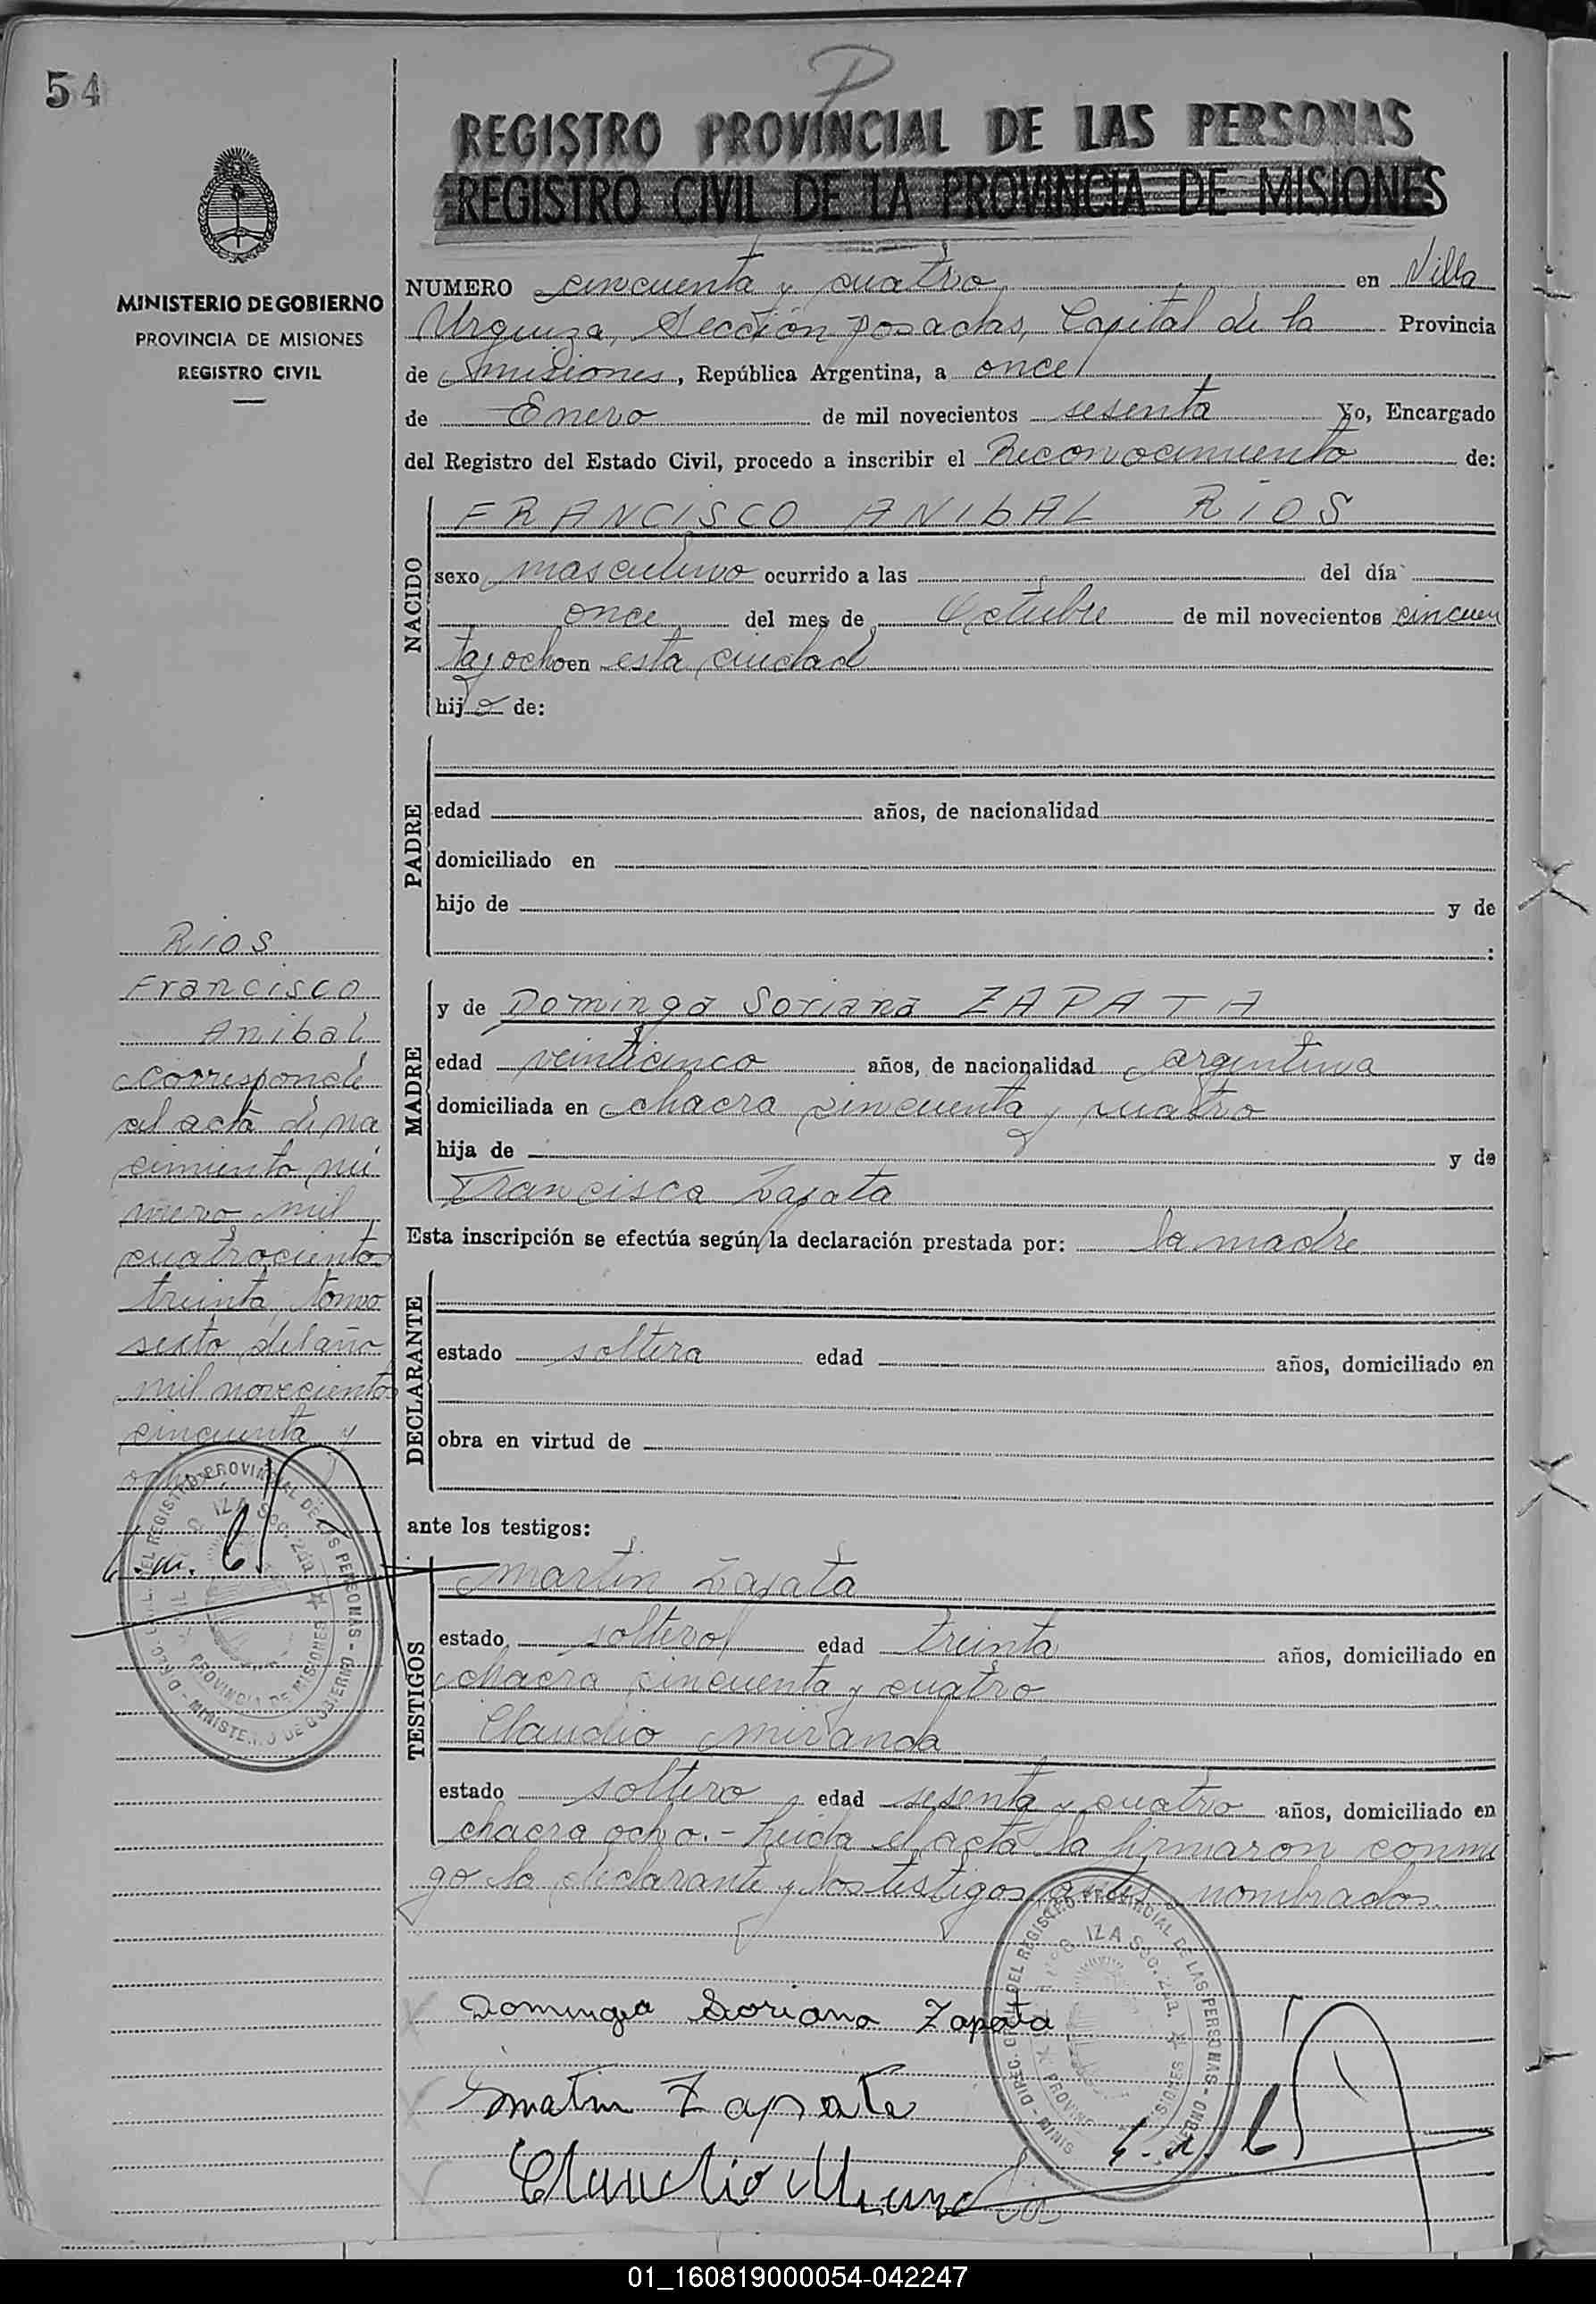 54
P
REGISTRO PROVINCIAL DE LAS PERSONAS
REGISTRO CIVIL DE LA PROVINCIA DE MISIONES
MINISTERIO DE GOBIERNO
PROVINCIA DE MISIONES
REGISTRO CIVIL
NUMERO cincuenta y cuatro en Villa
Urquiza, Sección Posadas, Capital de la Provincia
de Misiones, República Argentina, a once
de Enero de mil novecientos sesenta Yo, Encargado
del Registro del Estado Civil, procedo a inscribir el Reconocimiento de:
NACIDO
FRANCISCO ANIBAL RIOS
sexo masculino ocurrido a las del día
once del mes de Octubre de mil novecientos cincuen
ta y ocho en esta ciudad
hijo de:
PADRE
edad años, de nacionalidad
domiciliado en
hijo de y de
:
MADRE
y de Dominga Soriana ZAPATA
edad veinticinco años, de nacionalidad argentina
domiciliada en chacra cincuenta y cuatro
hija de y de
Francisca Zapata
Esta inscripción se efectúa según la declaración prestada por: la madre
DECLARANTE
estado soltera edad años, domiciliado en
obra en virtud de
ante los testigos:
TESTIGOS
Martin Zapata
estado soltero edad treinta años, domiciliado en
chacra cincuenta y cuatro
Claudio Miranda
estado soltero edad sesenta y cuatro años, domiciliado en
chacra ocho.- Leida el acta la firmaron conmi
go la declarante y los testigos antes nombrados.
Dominga Soriana Zapata
Martin Zapata
Claudio Miranda
Rios
Francisco
Anibal
corresponde
al acta de na
cimiento nú
mero mil
cuatrocientos
treinta tomo
sexto del año
mil novecientos
cincuenta y
ocho
DIREC. GRAL. DEL REGISTRO PROVINCIAL DE LAS PERSONAS - MINISTERIO DE GOBIERNO
PROVINCIA DE MISIONES
01_160819000054-042247